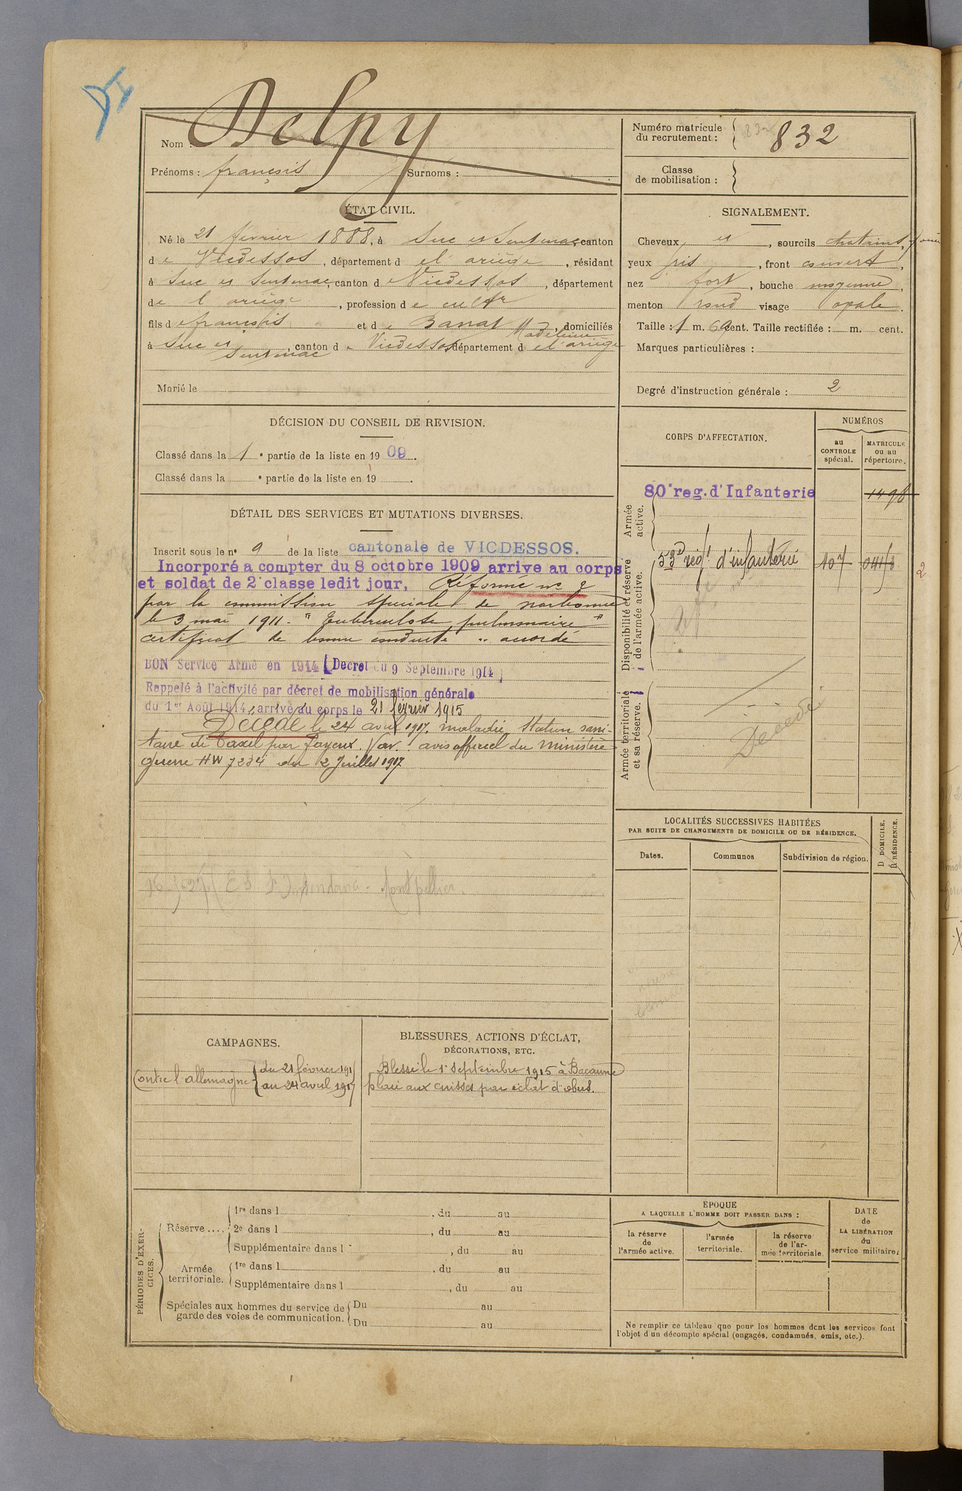 Nom Delpy
Prénoms : françois Surnoms :
Numéro matricule du recrutement : 832
Classe de mobilisation :
ÉTAT CIVIL.
Né le 21 février 1888, à Suc et Sentenac canton
de Vicdessos, département de l'ariège, résidant
à Suc et Sentenac canton de Vicdessos, département
de l'ariège, profession de cultr
fils de françois et de Banat Madeleine, domiciliés
à Suc et Sentenac, canton de Vicdessos département de l'ariège
Marié le
SIGNALEMENT.
Cheveux et, sourcils chatains,
yeux gris, front couvert,
nez fort, bouche moyenne,
menton rond visage ovale.
Taille : 1 m. cent. Taille rectifiée : m. cent.
Marques particulières :
Degré d'instruction générale : 2
DÉCISION DU CONSEIL DE REVISION.
Classé dans la 1e partie de la liste en 1909.
Classé dans la e partie de la liste en 19 .
DÉTAIL DES SERVICES ET MUTATIONS DIVERSES.
Inscrit sous le n° 9 de la liste cantonale de VICDESSOS.
Incorporé a compter du 8 octobre 1909 arrive au corps
et soldat de 2e classe ledit jour, Réformé n° 2
par la commission spéciale de narbonne
le 3 mai 1911. "Tuberculose pulmonaire"
certificat de bonne conduite " accordé
BON Service Armé en 1914 (Décret du 9 Septembre 1914)
Rappelé à l'activité par décret de mobilisation générale
du 1er Août 1914, arrivé au corps le 21 février 1915
Décédé le 24 avril 1917. maladie Station sani-
taire de par fayence. Var. avis officiel du ministère
guerre HW 7234 du 2 Juillet 1917
Montpellier.
CORPS D'AFFECTATION.
NUMÉROS
au CONTROLE spécial.
MATRICULE ou au répertoire.
Armée active.
80e reg. d'Infanterie 1498
Disponibilité et réserve de l'armée active.
53e régt d'infanterie 107
2
Armée territoriale et sa réserve.
Décédé
LOCALITÉS SUCCESSIVES HABITÉES
PAR SUITE DE CHANGEMENTS DE DOMICILE OU DE RÉSIDENCE.
Dates.
Communes
Subdivision de région.
D DOMICILE.
R RÉSIDENCE.
CAMPAGNES.
Contre l'allemagne du 21 février 191
au 24 avril 1917
BLESSURES, ACTIONS D'ÉCLAT,
DÉCORATIONS, ETC.
Blessé le 1er Septembre 1915 à
plaie aux cuisses par éclat d'obus.
PÉRIODES D'EXERCICES.
Réserve .... 1re dans l , du au
2e dans l , du au
Supplémentaire dans l , du au
Armée territoriale. 1re dans l , du au
Supplémentaire dans l , du au
Spéciales aux hommes du service de garde des voies de communication. Du au
Du au
ÉPOQUE
A LAQUELLE L'HOMME DOIT PASSER DANS :
la réserve de l'armée active.
l'armée territoriale.
la réserve de l'armée territoriale.
DATE de LA LIBÉRATION du service militaire.
Ne remplir ce tableau que pour les hommes dont les services font
l'objet d'un décompte spécial (engagés, condamnés, omis, etc.).